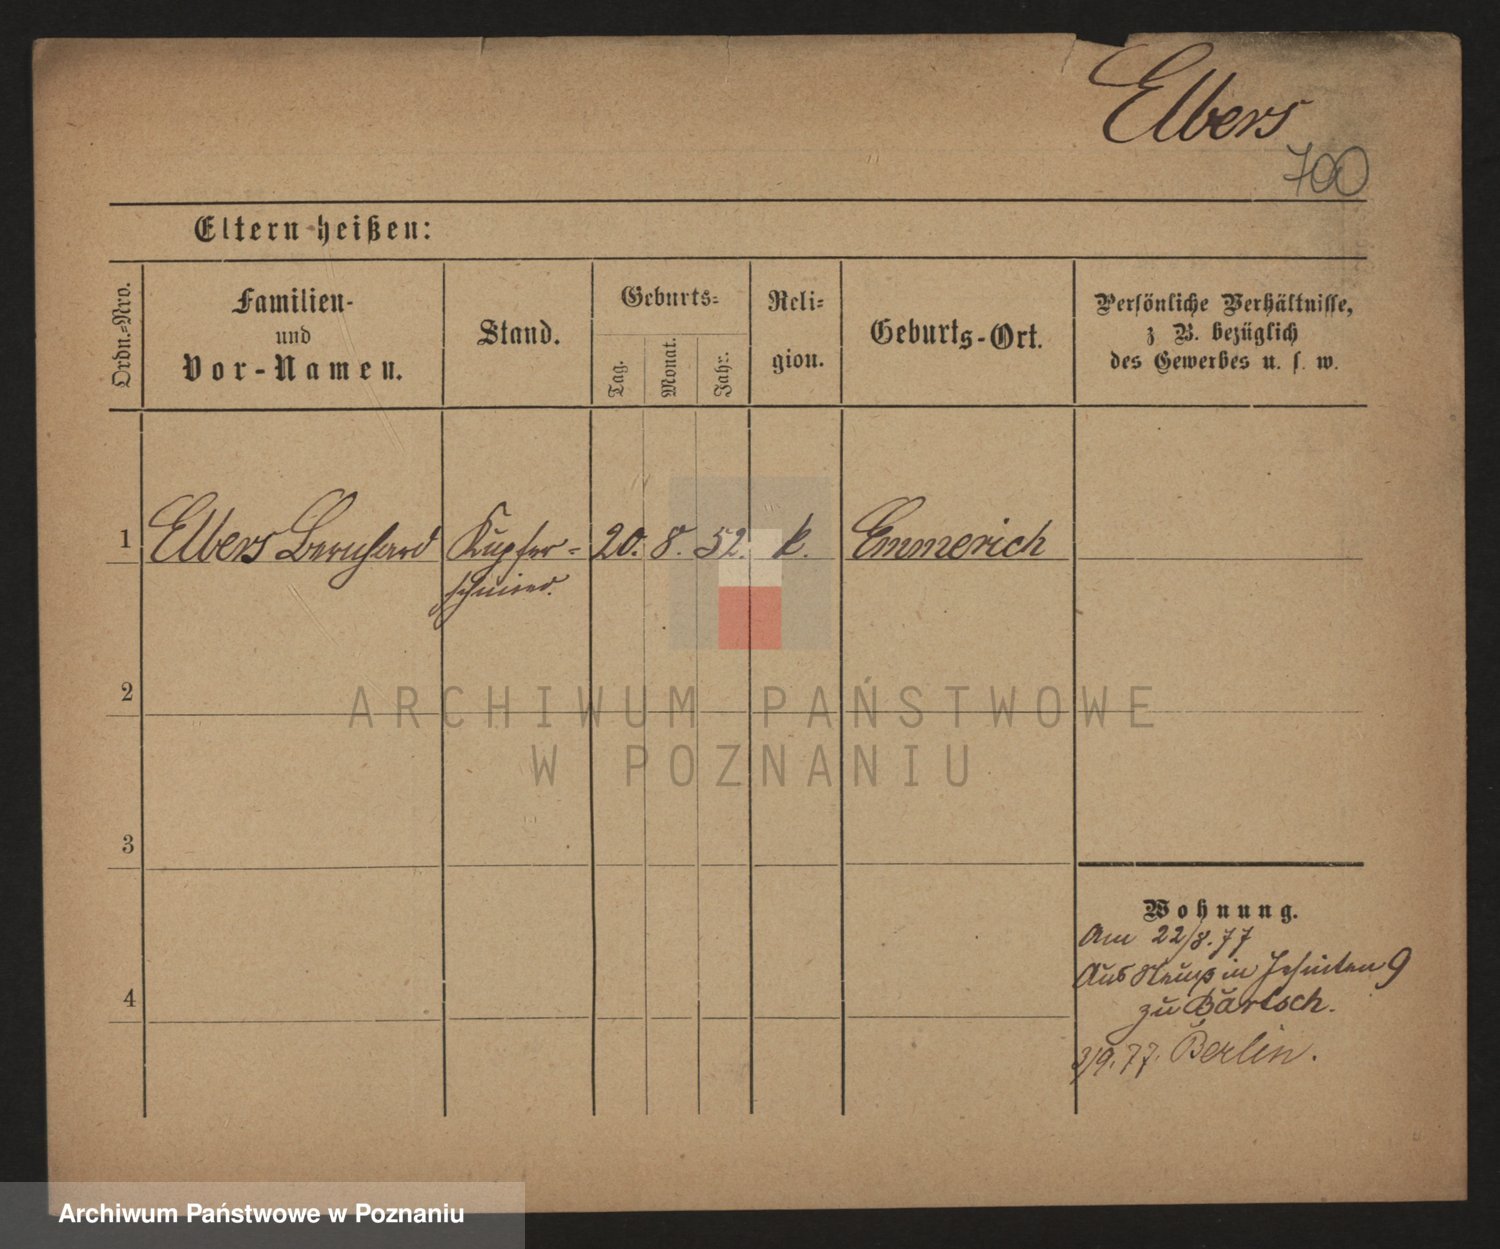 Elbers
700
Eltern heißen:
Ordn.-Nro.
Familien-
und
Vor-Namen.
Stand.
Geburts-
Tag.
Monat.
Jahr.
Reli-
gion.
Geburts-Ort.
Persönliche Verhältnisse,
z. B. bezüglich
des Gewerbes u. s. w.
1 Elbers Bernhard Kupfer- 20. 8. 52. k. Emmerich
schmied.
2
ARCHIWUM PAŃSTWOWE
W POZNANIU
3
Wohnung.
Am 22/8.77
Aus in Jesuiten 9
zu Bartsch.
4
3/9.77. Berlin.
Archiwum Państwowe w Poznaniu